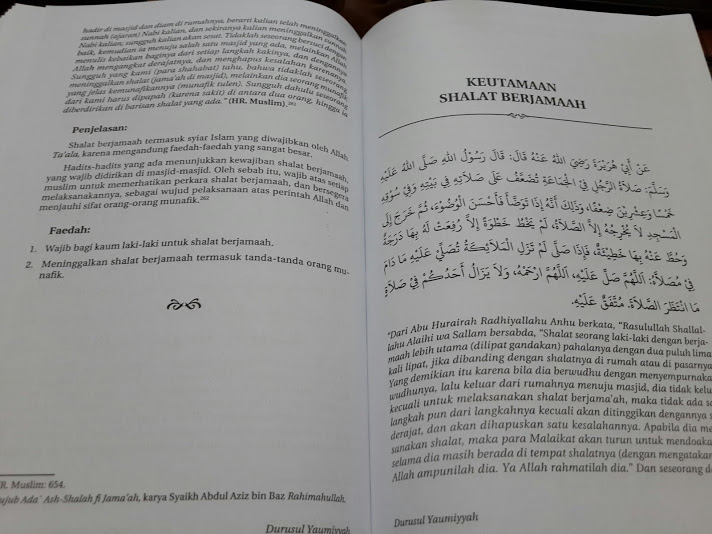 hadir di masjid dan diam di rumahnya, berarti kalian telah meninggalkan
sunnah (ajaran) Nabi kalian, dan sekiranya kalian meninggalkan sunnah
Nabi kalian; sungguh kalian akan sesat. Tidaklah seseorang bersuci dengan
baik, kemudian ia menuju salah satu masjid yang ada, melainkan Allah
menulis kebaikan baginya dari setiap langkah kakinya, dan dengannya
Allah mengangkat derajatnya, dan menghapus kesalahan karenanya.
Sungguh yang kami (para shahabat) tahu, bahwa tidaklah seseorang
meninggalkan shalat (jama'ah di masjid), melainkan dia seorang munafiq
yang jelas kemunafikannya (munafik tulen). Sungguh dahulu seseorang
dari kami harus dipapah (karena sakit) di antara dua orang, hingga ia
diberdirikan di barisan shalat yang ada." (HR. Muslim).261
Penjelasan:
Shalat berjamaah termasuk syiar Islam yang diwajibkan oleh Allah
Ta'ala, karena mengandung faedah-faedah yang sangat besar.
Hadits-hadits yang ada menunjukkan kewajiban shalat berjamaah,
yang wajib didirikan di masjid-masjid. Oleh sebab itu, wajib atas setiap
muslim untuk memerhatikan perkara shalat berjamaah, dan bersegera
melaksanakannya, sebagai wujud pelaksanaan atas perintah Allah dan
menjauhi sifat orang-orang munafik.262
Faedah:
1. Wajib bagi kaum laki-laki untuk shalat berjamaah.
2. Meninggalkan shalat berjamaah termasuk tanda-tanda orang mu-
nafik.
HR. Muslim: 654.
Ada` Ash-Shalah fi Jama'ah, karya Syaikh Abdul Aziz bin Baz Rahimahullah.
Durusul Yaumiyyah
KEUTAMAAN
SHALAT BERJAMAAH
عَنْ أَبِي هُرَيْرَةَ رَضِيَ اللهُ عَنْهُ قَالَ: قَالَ رَسُوْلُ اللهِ صَلَّى اللهُ عَلَيْهِ
وَسَلَّمَ: صَلَاةُ الرَّجُلِ فِي الْجَمَاعَةِ تُضَعَّفُ عَلَى صَلَاتِهِ فِي بَيْتِهِ وَفِي سُوْقِهِ
خَمْسًا وَعِشْرِيْنَ ضِعْفًا، وَذَلِكَ أَنَّهُ إِذَا تَوَضَّأَ فَأَحْسَنَ الْوُضُوْءَ، ثُمَّ خَرَجَ إِلَى
الْمَسْجِدِ لَا يُخْرِجُهُ إِلَّا الصَّلَاةُ، لَمْ يَخْطُ خَطْوَةً إِلَّا رُفِعَتْ لَهُ بِهَا دَرَجَةٌ
وَحُطَّ عَنْهُ بِهَا خَطِيْئَةٌ، فَإِذَا صَلَّى لَمْ تَزَلِ الْمَلَائِكَةُ تُصَلِّي عَلَيْهِ مَا دَامَ
فِي مُصَلَّاهُ: اَللَّهُمَّ صَلِّ عَلَيْهِ، اَللَّهُمَّ ارْحَمْهُ، وَلَا يَزَالُ أَحَدُكُمْ فِي صَلَاةٍ
مَا انْتَظَرَ الصَّلَاةَ. مُتَّفَقٌ عَلَيْهِ.
"Dari Abu Hurairah Radhiyallahu Anhu berkata, "Rasulullah Shallal-
lahu Alaihi wa Sallam bersabda, "Shalat seorang laki-laki dengan berja-
maah lebih utama (dilipat gandakan) pahalanya dengan dua puluh lima
kali lipat, jika dibanding dengan shalatnya di rumah atau di pasarnya.
Yang demikian itu karena bila dia berwudhu dengan menyempurnakan
wudhunya, lalu keluar dari rumahnya menuju masjid, dia tidak
kecuali untuk melaksanakan shalat berjama'ah, maka tidak ada
langkah pun dari langkahnya kecuali akan ditinggikan dengannya
derajat, dan akan dihapuskan satu kesalahannya. Apabila dia
sanakan shalat, maka para Malaikat akan turun untuk mendoakan
selama dia masih berada di tempat shalatnya (dengan mengatakan
Allah ampunilah dia. Ya Allah rahmatilah dia." Dan seseorang
Durusul Yaumiyyah